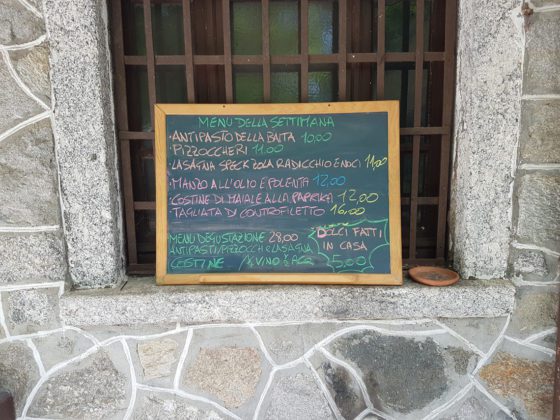 MENÙ DELLA SETTIMANA
• ANTIPASTO DELLA BAITA 10,00
• PIZZOCCHERI 11.00
• LASAGNA SPECK ZOLA RADICCHIO E NOCI 11,00
• MANZO ALL'OLIO E POLENTA 12,00
• COSTINE DI MAIALE ALLA PAPRIKA 12,00
• TAGLIATA DI CONTROFILETTO 16,00
MENÙ DEGUSTAZIONE 28,00
ANTIPASTI/PIZZOCCHI E LASAGNA
COSTINE / ¼ VINO ½ ACQ
DOLCI FATTI
IN CASA
5,00